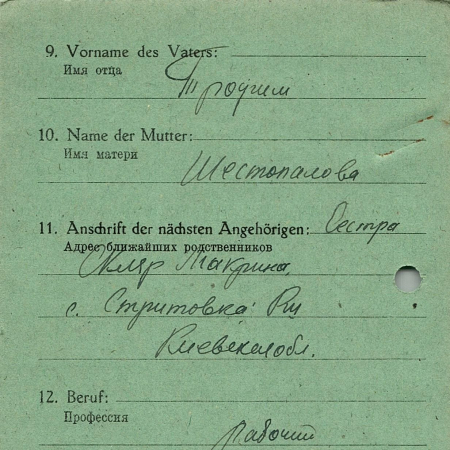 9. Vorname des Vaters:
Имя отца
Трофим
10. Name der Mutter:
Имя матери
Шестопалова
11. Anschrift der nächsten Angehörigen: Сестра
Адрес ближайших родственников
Скляр Макрина,
с. Стритовка
Киевская обл.
12. Beruf:
Профессия
рабочий